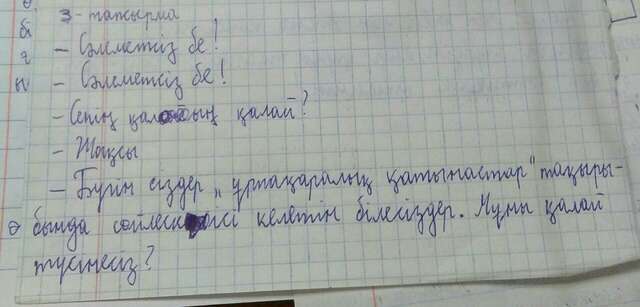 3-тапсырма
- Сәлеметсіз бе!
- Сәлеметсіз бе!
- Сенің қалың қалай?
- Жақсы
- Бүгін сіздер "ұрпақаралық қатынастар" тақыры-
бында сөйлескісі келетін білесіздер. Мұны қалай
түсінесіз?